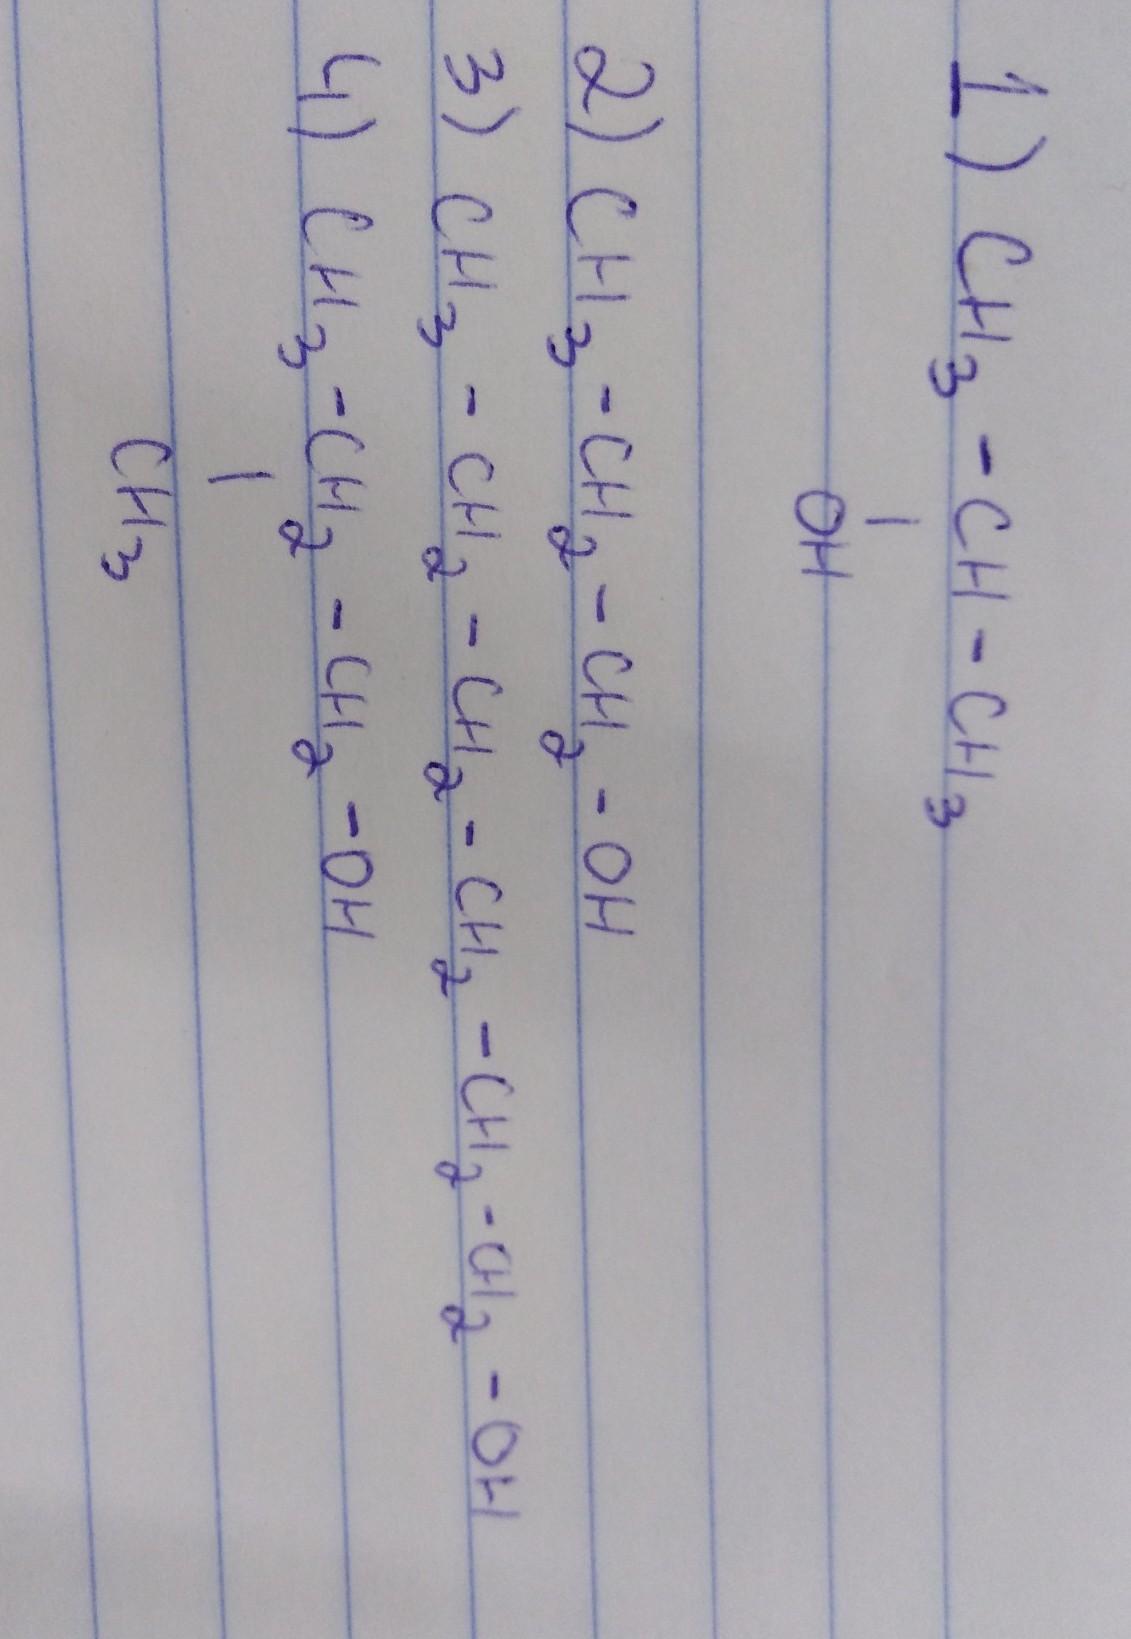 1) CH₃ - CH - CH₃
|
OH
2) CH₃ - CH₂ - CH₂ - OH
3) CH₃ - CH₂ - CH₂ - CH₂ - CH₂ - CH₂ - OH
4) CH₃ - CH₂ - CH₂ - OH
|
CH₃